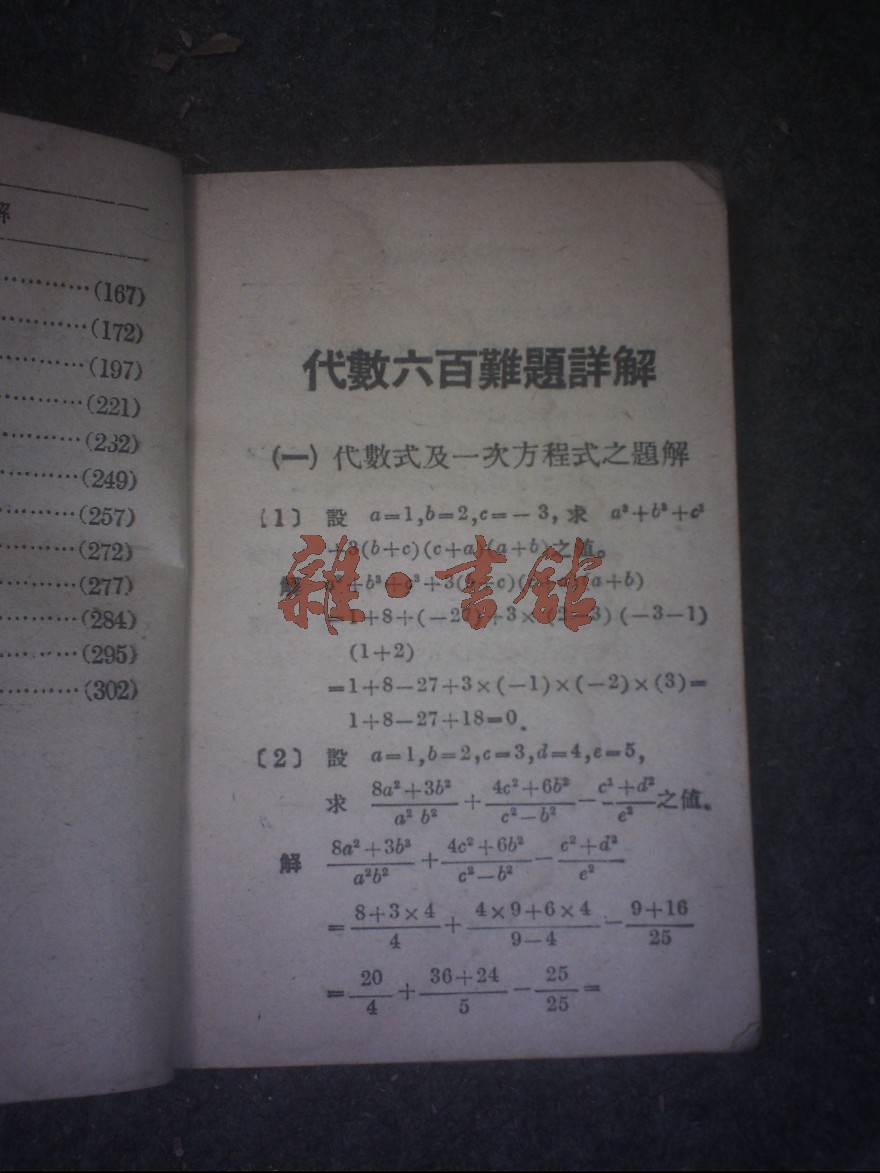 解
……………(167)
……………(172)
……………(197)
……………(221)
……………(232)
……………(249)
……………(257)
……………(272)
……………(277)
……………(284)
……………(295)
……………(302)
代數六百難題詳解
(一) 代數式及一次方程式之題解
〔1〕 設 a=1,b=2,c=-3, 求 a³+b³+c³
+3(b+c)(c+a)(a+b)之值。
解 a³+b³+c³+3(b+c)(c+a)(a+b)
=1+8+(-27)+3×(2-3)(-3-1)
(1+2)
=1+8-27+3×(-1)×(-2)×(3)=
1+8-27+18=0.
〔2〕 設 a=1,b=2,c=3,d=4,e=5,
求 (8a²+3b²)/(a² b²) + (4c²+6b²)/(c²-b²) - (c¹+d²)/e² 之值。
解 (8a²+3b³)/(a²b²) + (4c²+6b²)/(c²-b²) - (c²+d²)/e²
= (8+3×4)/4 + (4×9+6×4)/(9-4) - (9+16)/25
= 20/4 + (36+24)/5 - 25/25 =
雜·書館